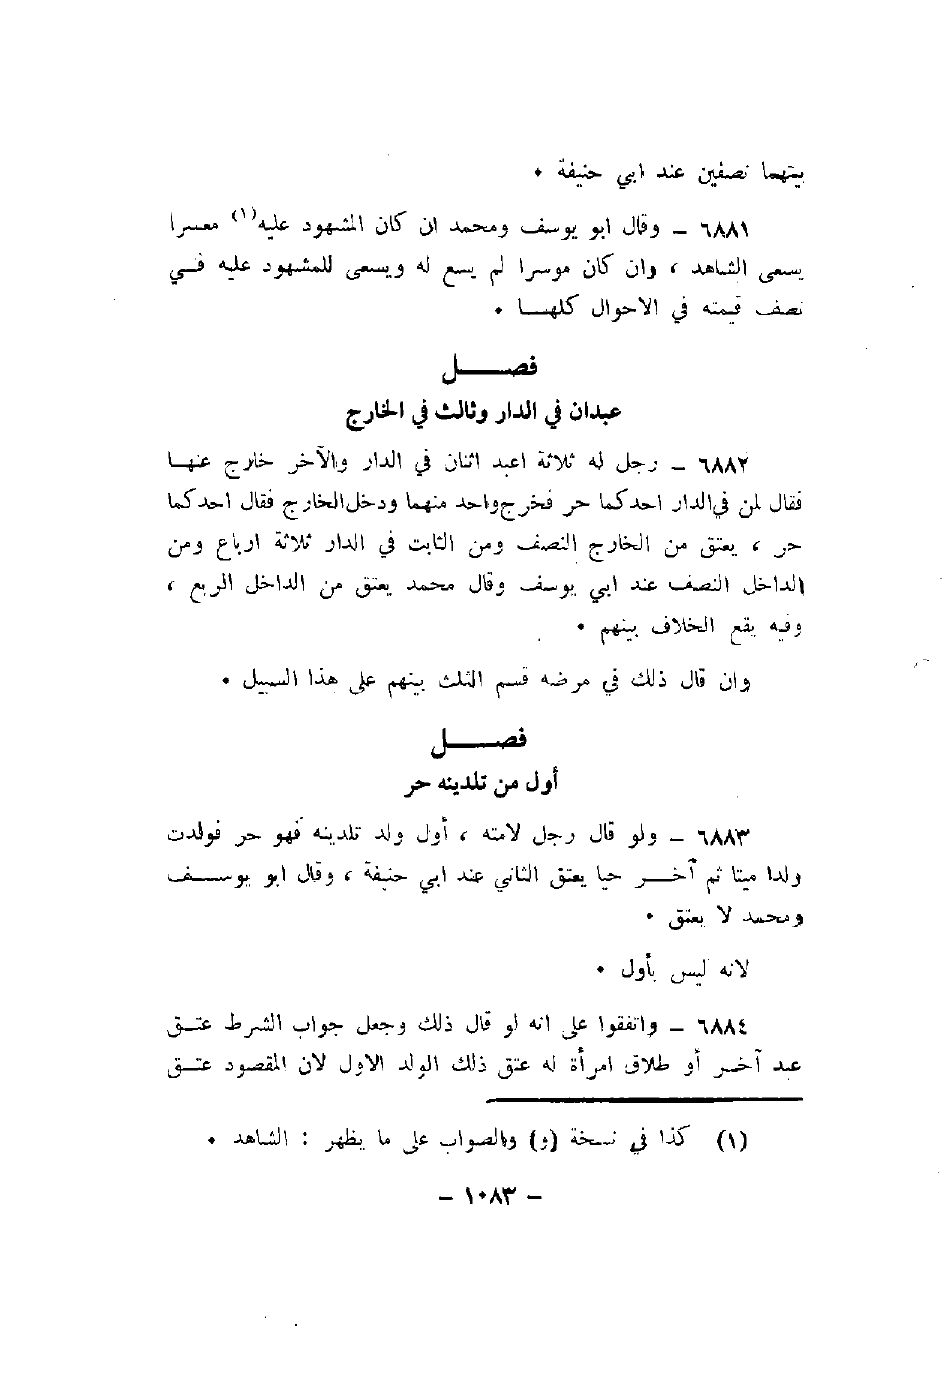 بينهما نصفين عند ابي حنيفة •
٦٨٨١ ـ وقال ابو يوسف ومحمد ان كان المشهود عليه(١) معسرا
يسعى الشاهد ، وان كان موسرا لم يسع له ويسعى للمشهود عليه فـي
نصف قيمته في الاحوال كلهـــا •
فصـــــل
عبدان في الدار وثالث في الخارج
٦٨٨٢ ـ رجل له ثلاثة اعبد اثنان في الدار والآخر خارج عنهـا
فقال لمن في الدار احدكما حر فخرج واحد منهما ودخل الخارج فقال احدكما
حر ، يعتق من الخارج النصف ومن الثابت في الدار ثلاثة ارباع ومن
الداخل النصف عند ابي يوسف وقال محمد يعتق من الداخل الربع ،
وفيه يقع الخلاف بينهم •
وان قال ذلك في مرضه قسم الثلث بينهم على هذا السبيل •
فصـــــل
أول من تلدينه حر
٦٨٨٣ ـ ولو قال رجل لامته ، أول ولد تلدينه فهو حر فولدت
ولدا ميتا ثم آخـــر حيا يعتق الثاني عند ابي حنيفة ، وقال ابو يوســـف
ومحمد لا يعتق •
لانه ليس بأول •
٦٨٨٤ ـ واتفقوا على انه لو قال ذلك وجعل جواب الشرط عتــق
عبد آخـر أو طلاق امرأة له عتق ذلك الولد الاول لان المقصود عتــق
(١) كذا في نسخة (و) والصواب على ما يظهر : الشاهد •
ـ ١٠٨٣ ـ